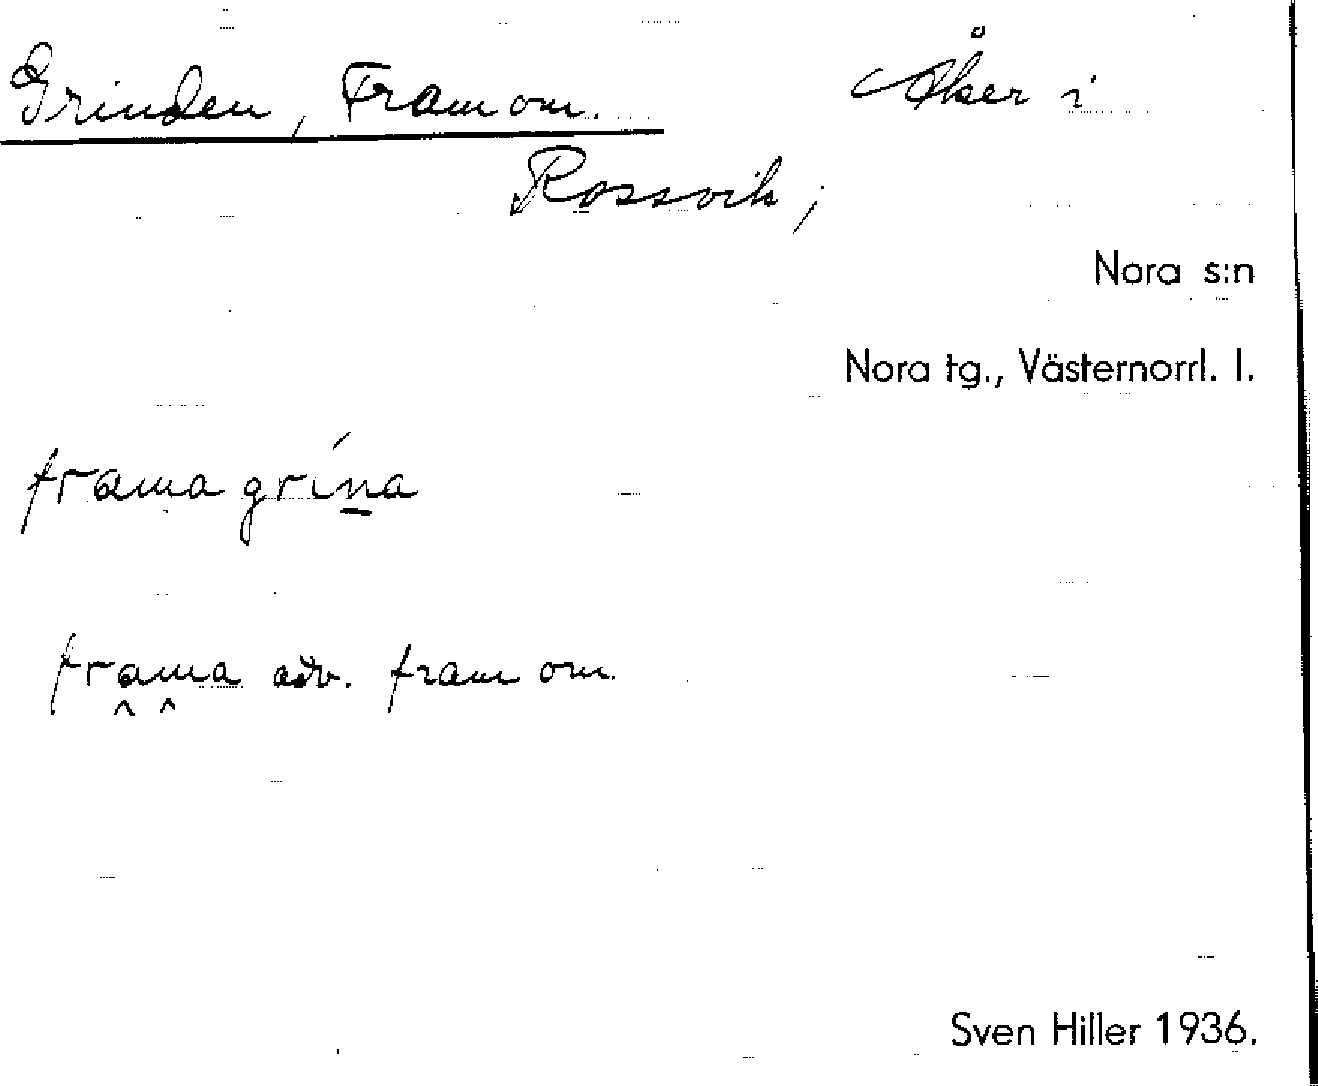 Grinden, Framom. Åker i
Rossvik,
Nora s:n
Nora tg., Västernorrl. l.
frama grína
frama adv. fram om.
Sven Hiller 1936.